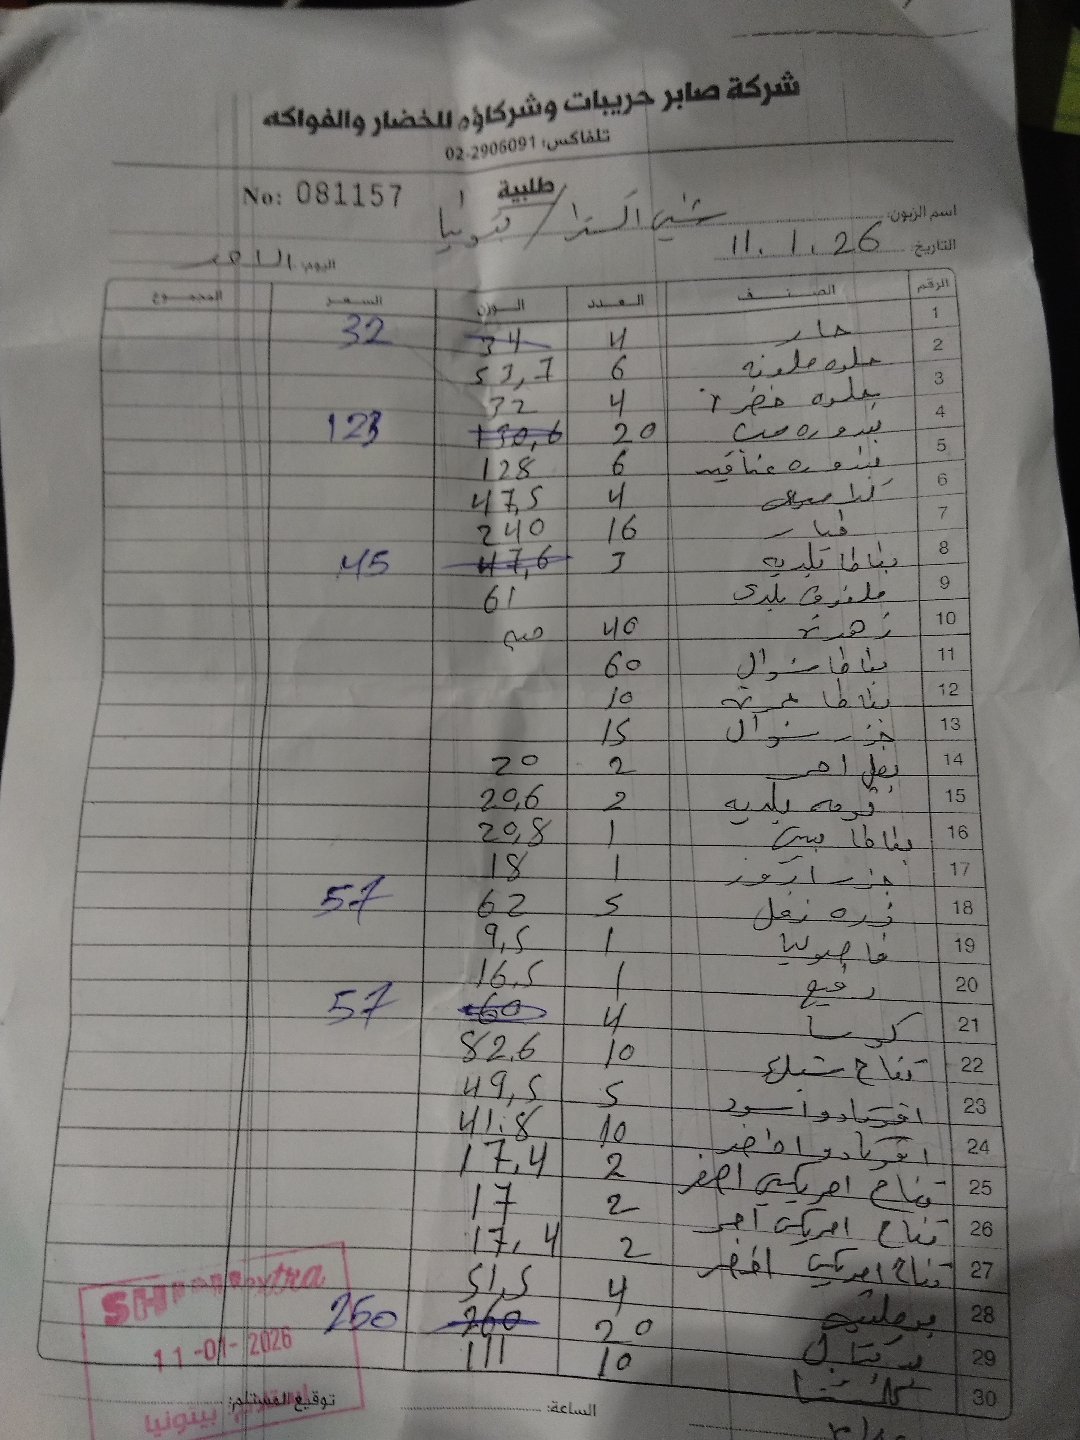 شركة صابر حريبات وشركاؤه للخضار والفواكه
تلفاكس: 02-2906091
طلبية
No: 081157
اسم الزبون: شيني اكسترا / بيتونيا
التاريخ: 11.1.26
اليوم: الاحد
الرقم الصنف العدد الوزن السعر المجموع
1 حار 4 34 32
2 حلوه ملونه 6 53,7
3 حلوه خضرة 4 32
4 بندوره حب 20 130,6 123
5 بندوره عناقيد 6 128
6 4 47,5
7 خيار 16 240
8 بطاطا بلديه 3 47,6 45
9 ملفوف بلدي 61
10 زهرة 40 حبه
11 بطاطا شوال 60
12 بطاطا 10
13 جزر شوال 15
14 بصل احمر 2 20
15 بلديه 2 20,6
16 بطاطا بيبي 1 20,8
17 جزر 1 18
18 ذره 5 62 57
19 فاصوليا 1 9,5
20 رفيع 1 16,5
21 كوسا 4 60 57
22 تفاح 10 82,6
23 افوكادو اسود 5 49,5
24 افوكادو اخضر 10 41.8
25 تفاح امريكي اصفر 2 17,4
26 تفاح امريكي احمر 2 17
27 تفاح امريكي اخضر 2 17,4
28 4 51,5
29 برتقال 20 260 250
30 10 111
SHini extra
11-01-2026
بيتونيا
الساعة:
توقيع المستلم: